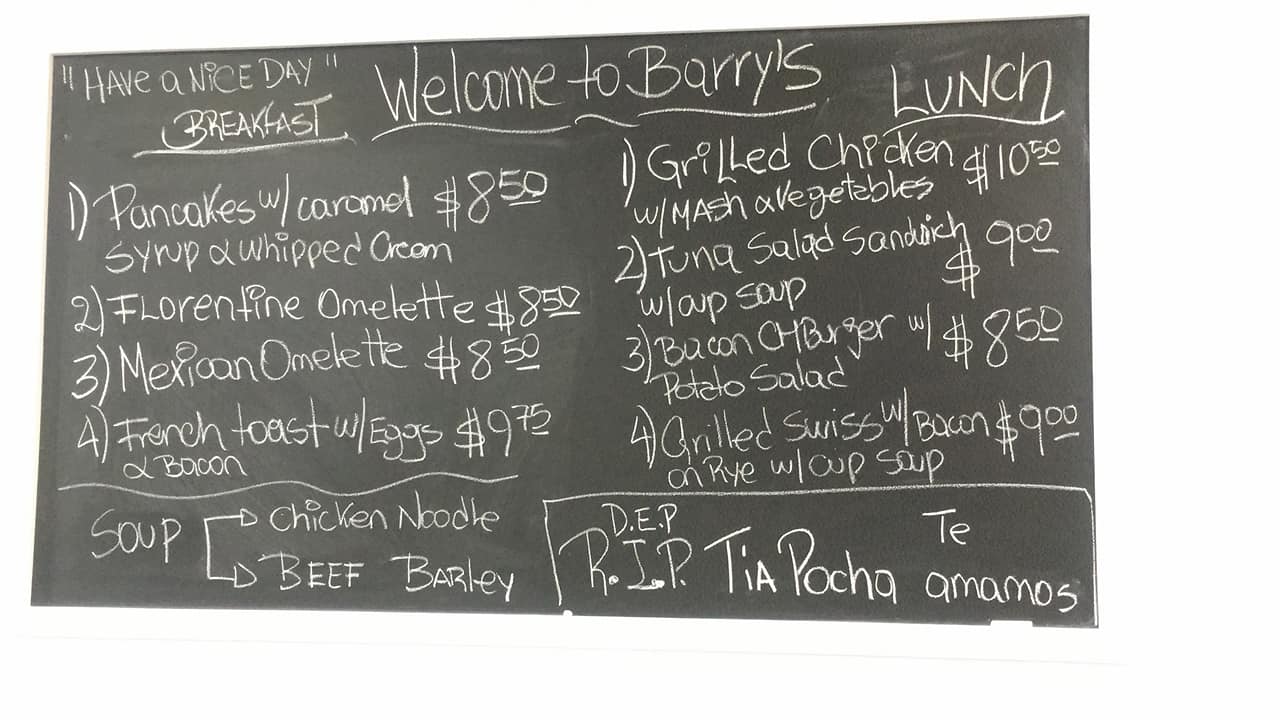 "HAVE a NiCE DAY"
Welcome to Barry's
BREAKFAST
1) Pancakes w/ caramel $8.50
Syrup & Whipped Cream
2) Florentine Omelette $8.50
3) Mexican Omelette $8.50
4) French toast w/ Eggs $9.75
& Bacon
Soup
Chicken Noodle
BEEF Barley
LUNCh
1) Grilled Chicken $10.50
w/ MAsh & Vegetables
2) Tuna Salad Sandwich $9.00
w/ cup soup
3) Bacon CHBurger w/ $8.50
Potato Salad
4) Grilled Swiss w/ Bacon $9.00
on Rye w/ cup soup
D.E.P
R.I.P. Tia Pocha Te
amamos